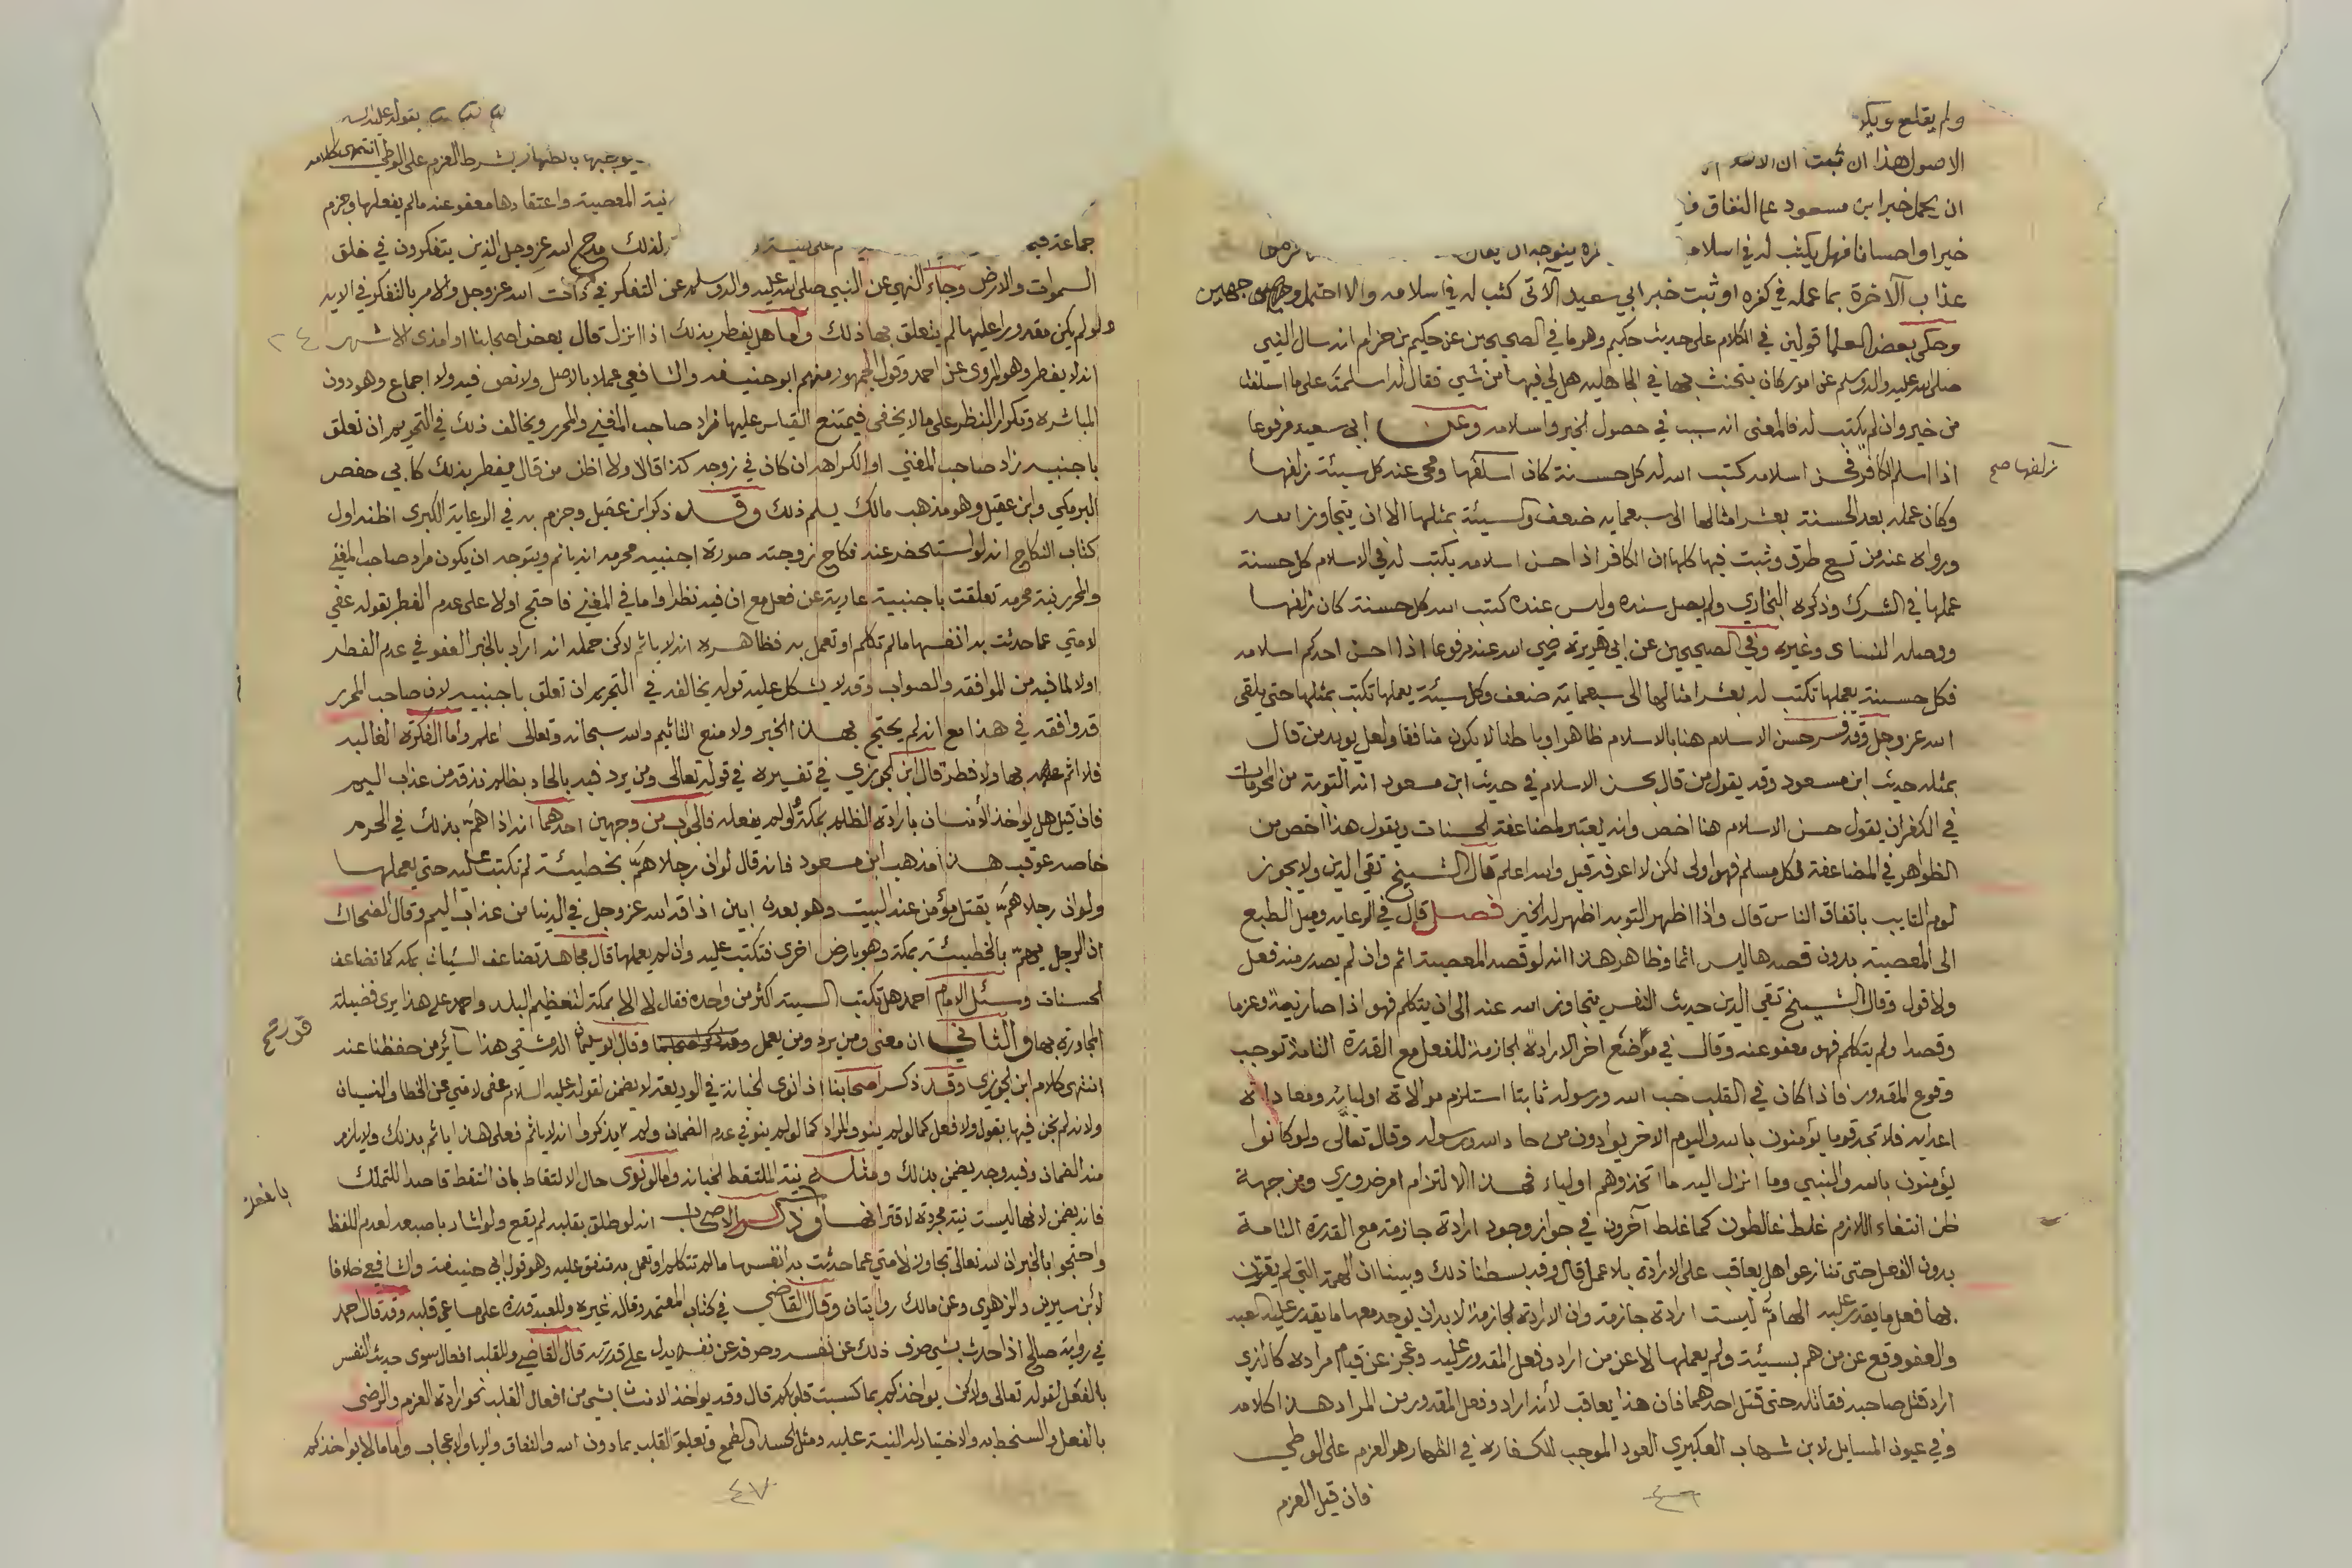 ولم يقلع ويكر
الاصول هذا ان ثبت ان الاسلام
ان يحمل خبر ابن مسعود على النفاق
خيرا واحسانا فهل يكتب له في اسلامه يتوجه ان يقال
عذاب الآخرة بما عمله في كفره او ثبت خبر ابي سعيد الآتي كتب له في اسلامه والا احتمل وجهين
وحكى بعض العلما قولين في الكلام على حديث حكيم وهو ما في الصحيحين عن حكيم بن حزام انه سال النبي
صلى الله عليه واله وسلم عن امور كان يتحنث بها في الجاهلية هل لي فيها من شي فقال له اسلمت على ما اسلفت
من خير وان لم يكتب له فالمعنى انه سبب في حصول الخير واسلامه وعن ابي سعيد مرفوعا
زلفها صح
اذا اسلم الكافر فحسن اسلامه كتب الله له كل حسنة كان اسلفها ومحى عنه كل سيئة زلفها
وكان عمله بعد الحسنة بعشر امثالها الى سبعماية ضعف والسيئة بمثلها الا ان يتجاوز الله
ورواه عنه من تسع طرق وثبت فيها كلها ان الكافر اذا حسن اسلامه يكتب له في الاسلام كل حسنة
عملها في الشرك وذكره البخاري ولم يصل سنده وليس عنده كتب الله كل حسنة كان زلفها
ووصله النساى وغيره وفي الصحيحين عن ابي هريرة رضي الله عنه مرفوعا اذا احسن احدكم اسلامه
فكل حسنة يعملها تكتب له بعشر امثالها الى سبعماية ضعف وكل سيئة يعملها تكتب بمثلها حتى يلقى
الله عز وجل وقد فسر حسن الاسلام هنا بالاسلام ظاهرا وباطنا لا يكون منافقا ولعل يويد من قال
بمثله حديث ابن مسعود وقد يقول من قال بحسن الاسلام في حديث ابن مسعود انه التوبة من المحرمات
في الكفران يقول حسن الاسلام هنا اخص وانه يعتبر لمضاعفة الحسنات ويقول هذا اخص من
الظواهر في المضاعفة لكل مسلم فهو اولى لكن لا اعرفه قيل والله اعلم قال الشيخ تقي الدين ولا يجوز
لوم التايب باتفاق الناس قال واذا اظهر التوبه اظهر له الخير فصل قال في الرعايه وميل الطبع
الى المعصية بدون قصدها ليس اثما وظاهر هذا انه لو قصد المعصية اثم وان لم يصدر منه فعل
ولا قول وقال الشيخ تقي الدين حديث النفس يتجاوز الله عنه الى ان يتكلم فهو اذا صار نية وعزما
وقصدا ولم يتكلم فهو معفو عنه وقال في موضع اخر الارادة الجازمة للفعل مع القدرة التامة توجب
وقوع المقدور فاذا كان في القلب حب الله ورسوله ثابتا استلزم موالاة اوليايه ومعاداة
اعدايه فلا تجد قوما يؤمنون بالله واليوم الاخر يوادون من حاد الله ورسوله وقال تعالى ولو كانوا
يؤمنون بالله والنبي وما انزل اليه ما اتخذوهم اولياء فهذا الالتزام امر ضروري ومن جهة
ظن انتفاء اللازم غلط غالطون كما غلط آخرون في جواز وجود ارادة جازمة مع القدرة التامة
بدون الفعل حتى تنازعوا هل يعاقب على الارادة بلا عمل قال وقد بسطنا ذلك وبينا ان الهمة التي لم يقترن
بها فعل ما يقدر عليه الهامّ ليست ارادة جازمة وان الارادة الجازمة لا بد ان يوجد معها ما يقدر عليه العبد
والعفو وقع عن من هم بسيئة ولم يعملها لا عن من اراد وفعل المقدور عليه وعجز عن قيام مراده كالذي
اراد قتل صاحبه فقاتله حتى قتل احدهما فان هذا يعاقب لأنه اراد وفعل المقدور من المراد هذا كلامه
وفي عيون المسايل لابن شهاب العكبري العود الموجب للكفاره في الظهار هو العزم على الوطي
فان قيل العزم
٤٦
يقوله عليه
يوجبها بالظهار بشرط العزم على الوطي انتهى كلامه
نية المعصية واعتقادها معفو عنه ما لم يفعلها وجزم
جماعة فيه ولذلك مدح الله عز وجل الذين يتفكرون في خلق
السموات والارض وجاء النهي عن النبي صلى الله عليه واله وسلم عن التفكر في ذات الله عز وجل والامر بالتفكر في الايه
ولو لم يكن مقدورا عليها لم يتعلق بها ذلك واما هل يفطر بذلك اذا انزل قال بعض اصحابنا او امذى الاشهر
٢٤
انه لا يفطر وهو المروى عن احمد وقول الجمهور منهم ابو حنيفه والشافعي عملا بالاصل ولا نص فيه ولا اجماع وهو دون
المباشره وتكرار النظر على ما لا يخفى فيمتنع القياس عليها فزاد صاحب المغني والمحرر ويخالف ذلك في التحريم ان تعلق
باجنبيه زاد صاحب المغني او الكراهه ان كان في زوجه كذا قالا ولا اظن من قال يفطر بذلك كابي حفص
البرمكي وابن عقيل وهو مذهب مالك يسلم ذلك وقد ذكر ابن عقيل وجزم به في الرعاية الكبرى اظنه اول
كتاب النكاح انه لو استحضر عند نكاح زوجته صورة اجنبيه محرمه انه ياثم ويتوجه ان يكون مراد صاحب المغني
والمحرر نية محرمه تعلقت باجنبية عارية عن فعل مع ان فيه نظرا واما في المغني فاحتج اولا على عدم الفطر بقوله عفي
لامتي عما حدثت به انفسها ما لم تكلم او تعمل به فظاهره انه لا ياثم لاكن حمله انه اراد بالخبر العفو في عدم الفطر
اولا لما فيه من الموافقه والصواب وقد لا يشكل عليه قوله يخالفه في التحريم ان تعلق باجنبيه لان صاحب المحرر
قد وافقه في هذا مع انه لم يحتج بهذا الخبر ولا منع التاثيم والله سبحانه وتعالى اعلم واما الفكرة الغالبه
فلا اثم بها ولا فطر قال ابن الجوزي في تفسيره في قوله تعالى ومن يرد فيه بالحاد بظلم نذقه من عذاب اليم
فان قيل هل يواخذ الأنسان بارادة الظلم بمكة ولو لم يفعله فالجواب من وجهين احدهما انه اذا همّ بذلك في الحرم
خاصه عوقب هذا مذهب ابن مسعود فانه قال لو ان رجلا همّ بخطيئة لم تكتب عليه حتى يعملها
ولو ان رجلا همّ بقتل مؤمن عند البيت وهو بعدن ابين اذاقه الله عز وجل في الدنيا من عذاب اليم وقال الضحاك
ان الرجل يهمّ بالخطيئة بمكة وهو بارض اخرى فتكتب عليه وان لم يعملها قال مجاهد تضاعف السيات بمكه كما تضاعف
الحسنات وسئل الامام احمد هل تكتب السيئة اكثر من واحده فقال لا الا بمكة لتعظيم البلد واحمد على هذا يرى فضيلة
المجاورة بها والثاني ان معنى ومن يرد ومن يعمل وقال ابو سليمان الدمشقي هذا سائر من حفظنا عنه
انتهى كلام ابن الجوزي وقد ذكر اصحابنا اذا نوى الخيانة في الوديعة لا يضمن لقوله عليه السلام عفي لامتي عن الخطا والنسيان
ولانه لم يخن فيها بقول ولا فعل كما لو لم ينو والمراد كما لو لم ينو في عدم الضمان ولم يذكروا انه لا ياثم فعلى هذا ياثم بذلك ولا يلزم
منه الضمان وفيه وجه يضمن بذلك ومثله نية الملتقط الخيانه واما لو نوى حال الالتقاط بان التقط قاصدا للتملك
فانه يضمن لانها ليست نية مجردة لاقترانها وذكر الاصحاب انه لو طلق بقلبه لم يقع ولو اشار باصبعه لعدم اللفظ
واحتجوا بالخبر ان الله تعالى تجاوز لامتي عما حدثت به انفسها ما لم تتكلم او تعمل به متفق عليه وهو قول ابي حنيفه والشافعي خلافا
لأبن سيرين والزهري وعن مالك روايتان وقال القاضي في كتاب المعتمد وقاله غيره وللعبد قدرة على ما في قلبه وقد قال احمد
في رواية صالح اذا حدث بشي صرف ذلك عن نفسه وصرفه عن نفسه يدل على قدرته قال القاضي وللقلب افعال سوى حديث النفس
بالفعل لقوله تعالى ولاكن يواخذكم بما كسبت قلوبكم قال وقد يواخذ الانسان بشي من افعال القلب نحو ارادة العزم والرضى
بالفعل والسخط به والاختيار له النية عليه ومثل الحسد والطمع وتعليق القلب بما دون الله والنفاق والريا والاعجاب واما ما لا يواخذكم
٤٧